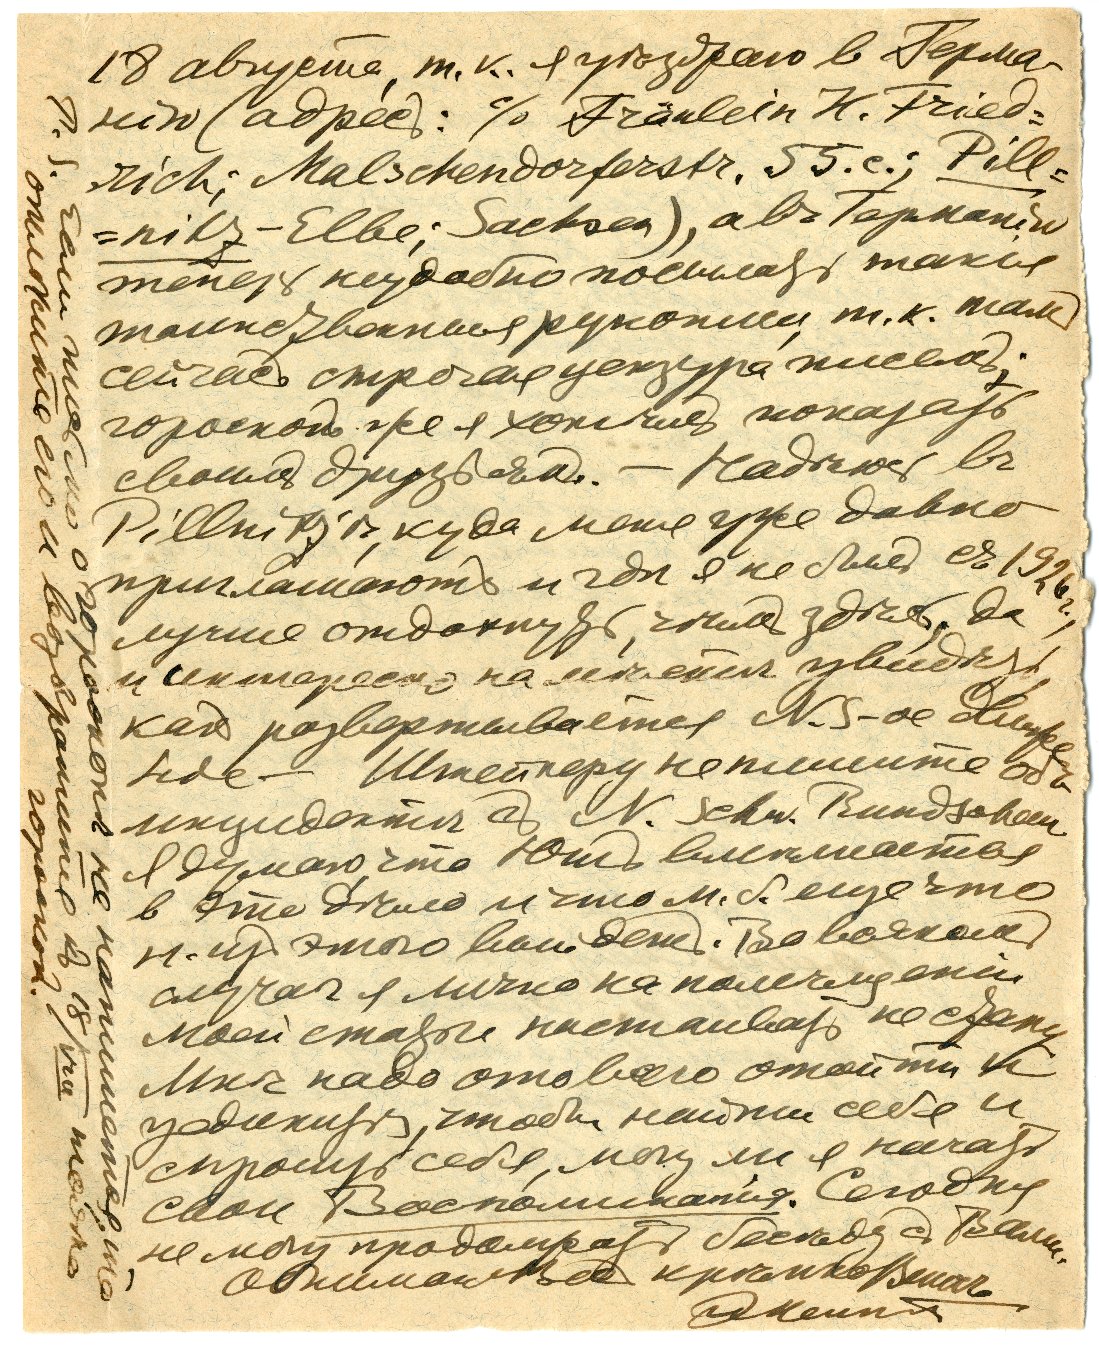 18 августа, т.к. я уѣзжаю в Герма-
нію (адресъ: c/o Fräulein H. Fried=
rich; Malschendorferstr. 55.c.; Pill=
=nitz-Elbe; Sachsen), а въ Германію
теперь неудобно посылать такія
таинственныя рукописи, т.к. тамъ
сейчасъ строгая цензура писемъ;
гороскопъ же я хотѣлъ показать
своимъ друзьямъ. — Надѣюсь въ
Pillnitz'ѣ, куда меня уже давно
приглашаютъ и гдѣ я не былъ съ 1926 г.,
лучше отдохнуть, чѣмъ здѣсь, да
и интересно на мѣстѣ увидѣть,
какъ развертывается N.S-ое
Штейнеру не пишите объ
инцидентѣ съ N. Schw. Rundschau
я думаю, что Ютъ вмѣшается
в это дѣло и что м.б. еще что
н. изъ этого выйдетъ. Во всякомъ
случаѣ я лично на помѣщеніи
моей статьи настаивать не стану
Мнѣ надо отъ всего отойти и
уединить, чтобы найти себя и
спросить себя, могу ли я начать
свои Воспоминанія. Сегодня
не могу продолжать бесѣду съ Вами.
Обнимаю Васъ крѣпко Вашъ
P.S. Если письмо о гороскопѣ не напишется, то
отложите его и возвратите къ 18/VIII только
гороскопъ.